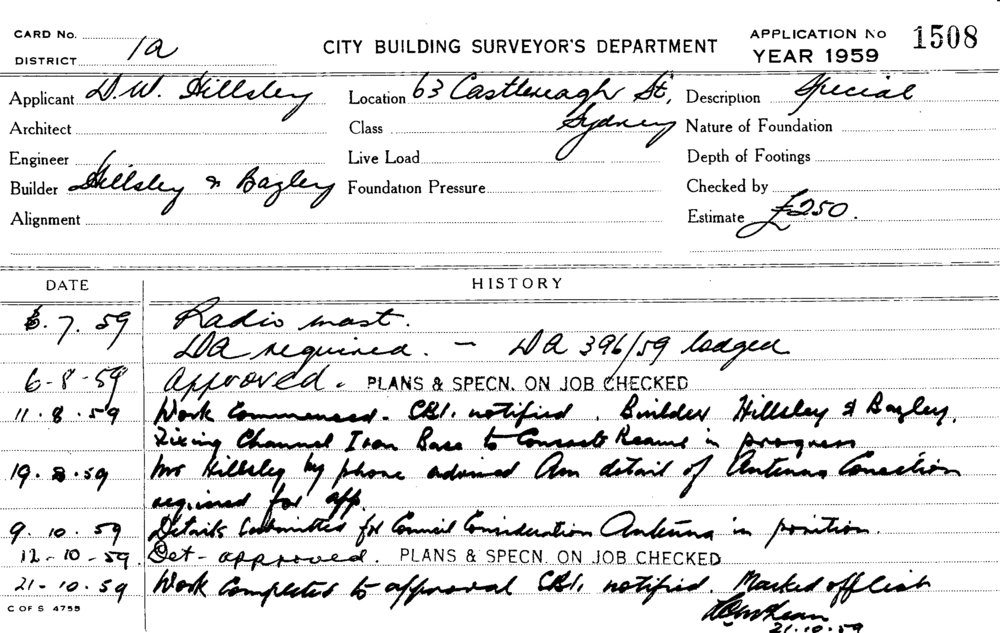 CARD No.
DISTRICT 1a
CITY BUILDING SURVEYOR'S DEPARTMENT
APPLICATION No 1508
YEAR 1959
Applicant D.W. Hillsley Location 63 Castlereagh St, Description Special
Architect Class Sydney Nature of Foundation
Engineer Live Load Depth of Footings
Builder Hillsley & Bagley Foundation Pressure Checked by
Alignment Estimate £250.
DATE HISTORY
6.7.59 Radio mast.
DA required. - DA 396/59 lodged
6-8-59 Approved. PLANS & SPECN. ON JOB CHECKED
11.8.59 Work Commenced. CBI. notified. Builder Hillsley & Bagley.
Fixing Channel Iron Base to Concrete in progress
19.8.59 Mr Hillsley by phone advised detail of Antenna Conection
required for app.
9.10.59 Details Submitted for Council Consideration Antenna in position.
12-10-59 Det- approved. PLANS & SPECN. ON JOB CHECKED
21-10.59 Work Completed to approval CBI. notified. Marked off list
21.10.59
C OF S 4755